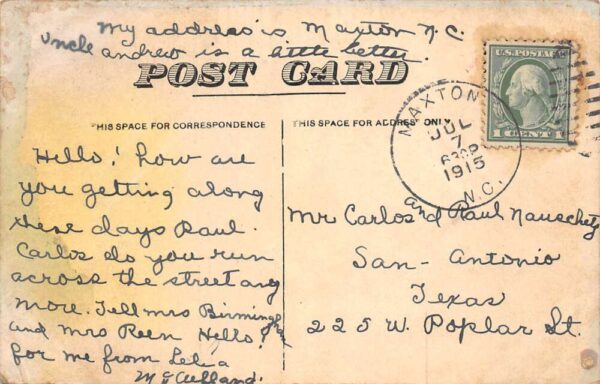 My address is, Maxton N.C.
Uncle andrew is a little better.
POST CARD
THIS SPACE FOR CORRESPONDENCE
THIS SPACE FOR ADDRESS ONLY
U.S. POSTAGE
1 CENT 1
MAXTON
JUL
7
630P
1915
N.C.
Hello! how are
you getting along
these days Paul.
Carlos do you run
across the street any
more. Tell mrs Birmingham
and mrs Reen Hello!
for me from Lelia
McClelland.
Mr Carlos and Paul Nauschetz
San-Antonio
Texas
225 W. Poplar St.